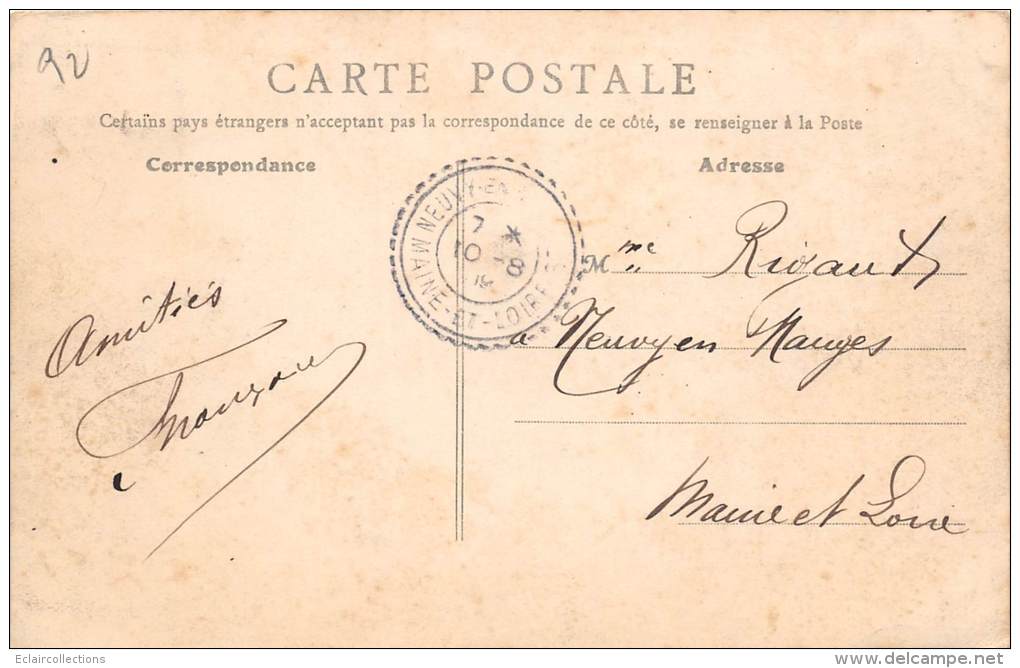 92
CARTE POSTALE
Certains pays étrangers n'acceptant pas la correspondance de ce côté, se renseigner à la Poste
Correspondance
Adresse
NEUVY-EN
7 *
10 -8
MAINE-ET-LOIRE
Mme
à Neuvy en Mauges
Amitiés
Maine et Loire
Eclaircollections
delcampe.net